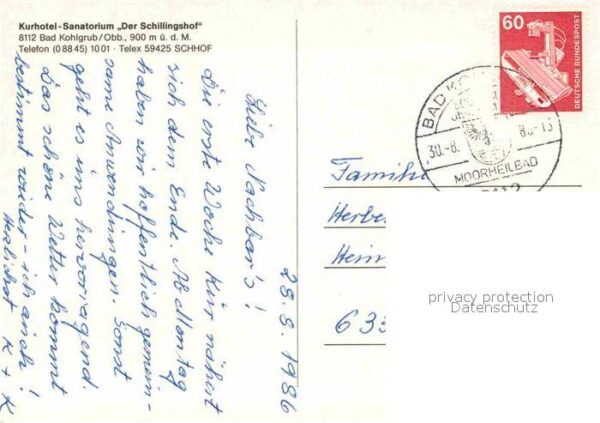 Kurhotel-Sanatorium „Der Schillingshof“
8112 Bad Kohlgrub/Obb., 900 m ü. d. M.
Telefon (0 88 45) 10 01 · Telex 59425 SCHHOF
28.8.1986
Liebe Nachbar's!
die erste Woche Kur nähert
sich dem Ende. Ab Montag
haben wir hoffentlich gemein-
same Anwendungen. Sonst
geht es uns hervorragend.
Das schöne Wetter kommt
bestimmt wieder - ich auch!
Herzlichst K + K
60
DEUTSCHE BUNDESPOST
BAD KO
30.-8.
86-13
MOORHEILBAD
8112
Famili
Herbe
Hein
633
privacy protection
Datenschutz